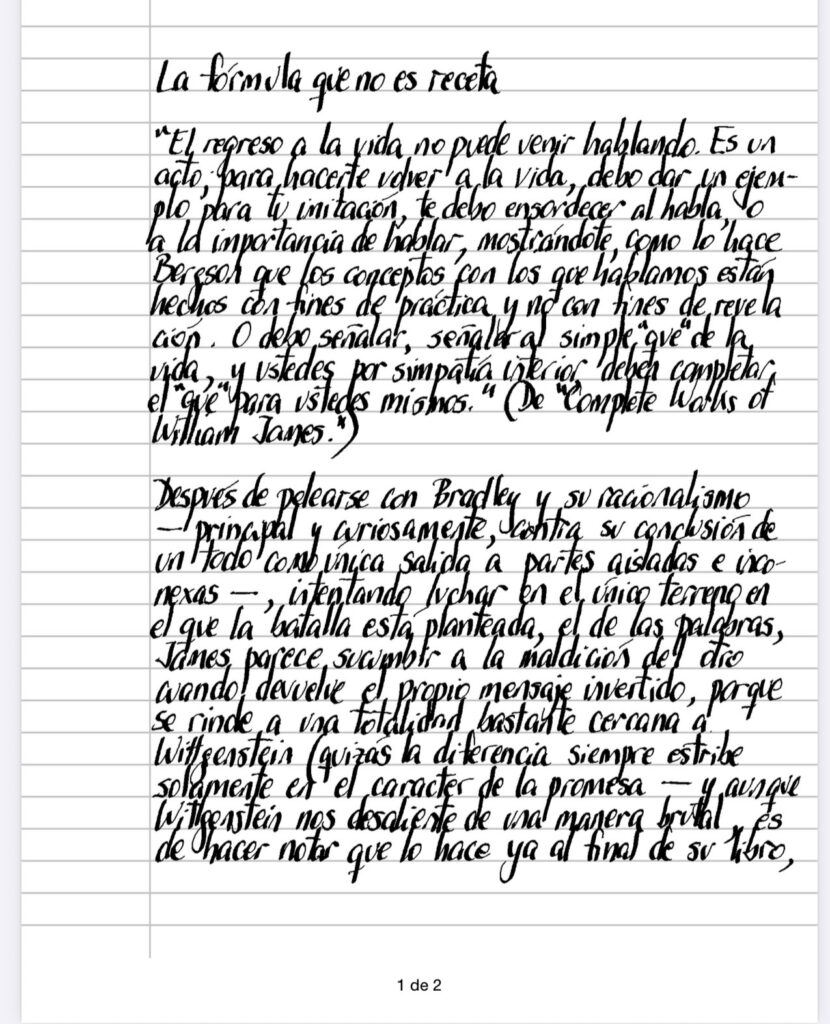 La fórmula que no es receta
"El regreso a la vida no puede venir hablando. Es un
acto; para hacerte volver a la vida, debo dar un ejem-
plo para tu imitación, te debo ensordecer al habla, o
a la importancia de hablar, mostrándote, como lo hace
Bergson que los conceptos con los que hablamos están
hechos con fines de práctica y no con fines de revela
ción. O debo señalar, señalar al simple "que" de la
vida, y ustedes por simpatía interior deben completar
el "qué" para ustedes mismos." (De "Complete Works of
William James.")
Después de pelearse con Bradley y su racionalismo
— principal y curiosamente, contra su conclusión de
un todo como única salida a partes aisladas e inco-
nexas —, intentando luchar en el único terreno en
el que la batalla está planteada, el de las palabras,
James parece sucumbir a la maldición del otro
cuando devuelve el propio mensaje invertido, porque
se rinde a una totalidad bastante cercana a
Wittgenstein (quizás la diferencia siempre estribe
solamente en el carácter de la promesa — y aunque
Wittgenstein nos desaliente de una manera brutal, es
de hacer notar que lo hace ya al final de su libro,
1 de 2